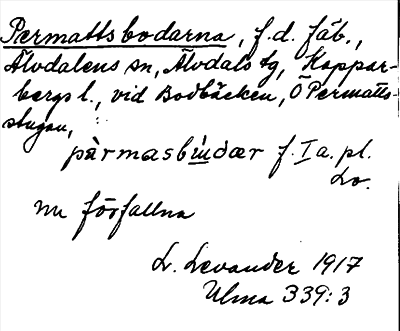 Permattsbodarna, f.d. fäb.,
Älvdalens sn, Älvdals tg, Koppar-
bergs l., vid Bodbäcken, Ö Permatts-
stugan,
f. I a. pl.
Lv.
nu förfallna
L. Levander 1917
Ulma 339:3